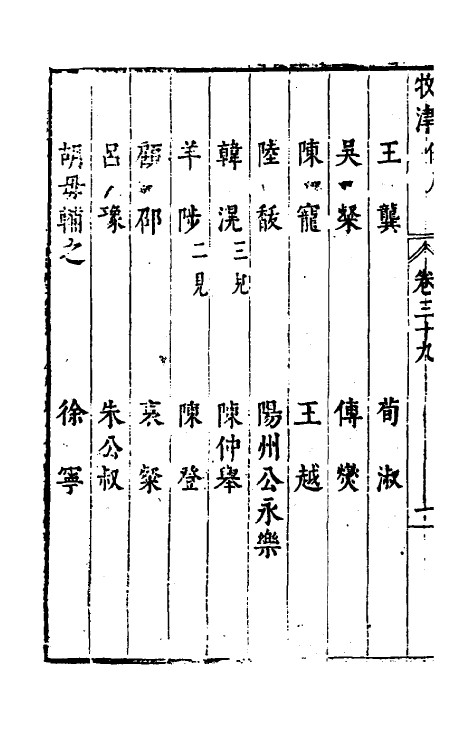 牧津
卷三十九
王龔
荀淑
吳粲
傅燮
陳寵
王越
陸馛
陽州公永樂
韓滉三見
陳仲舉
羊陟二見
陳登
顧邵
袁粲
呂豫
朱公叔
胡毋輔之
徐寧